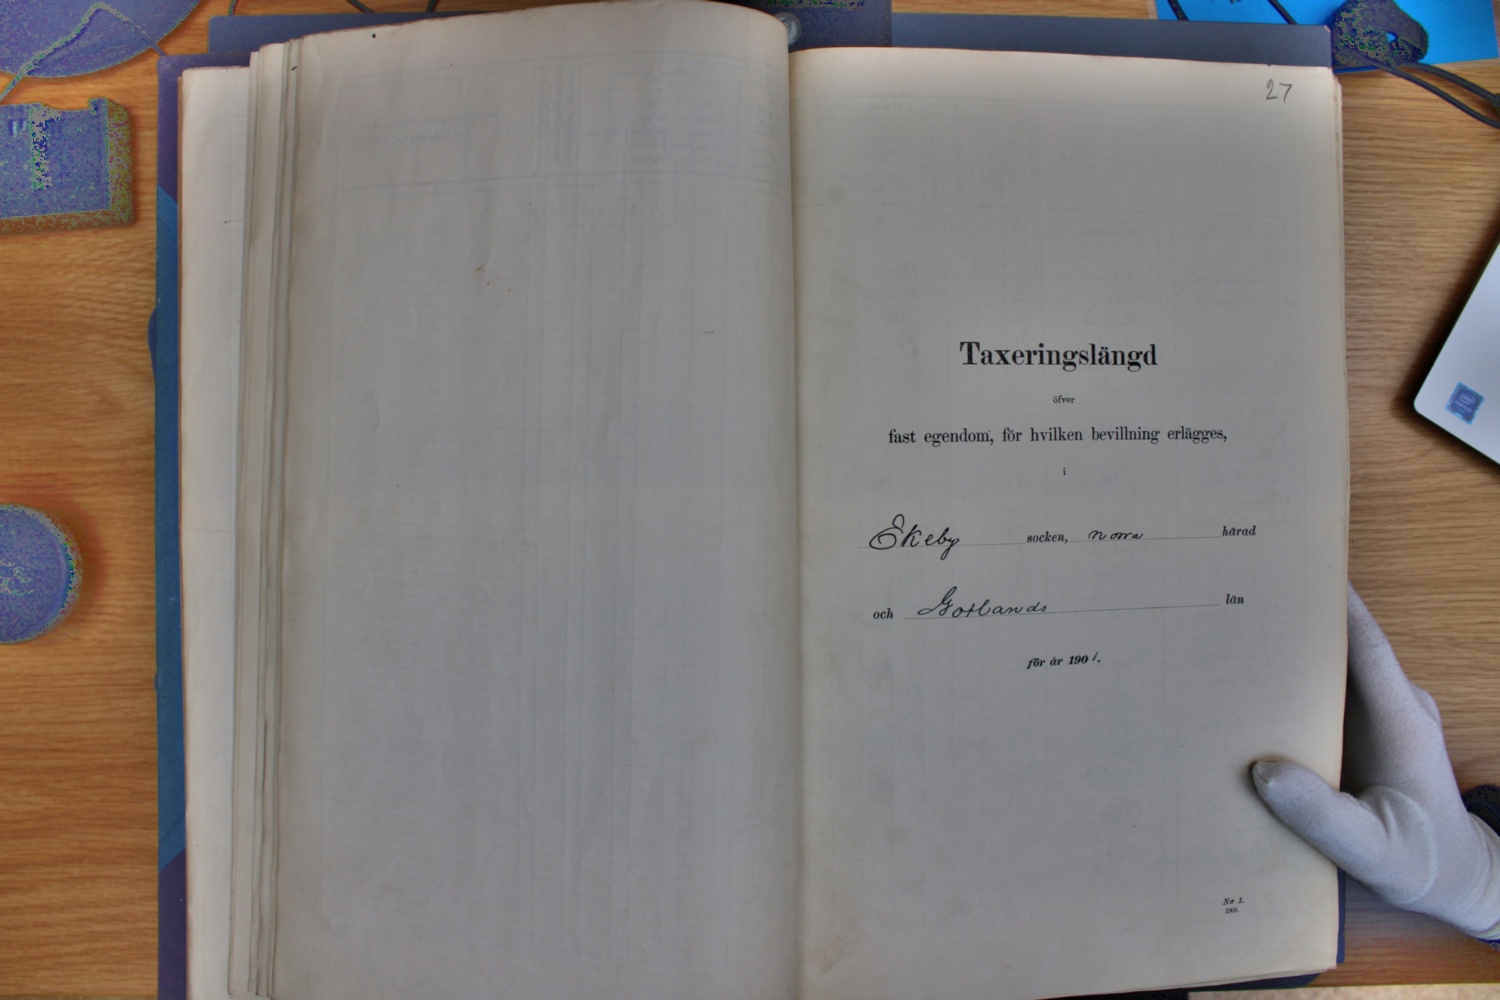 27
Taxeringslängd
öfver
fast egendom, för hvilken bevillning erlägges,
i
Ekeby socken, norra härad
och Gotlands län
för år 1901.
Nr 1.
1900.